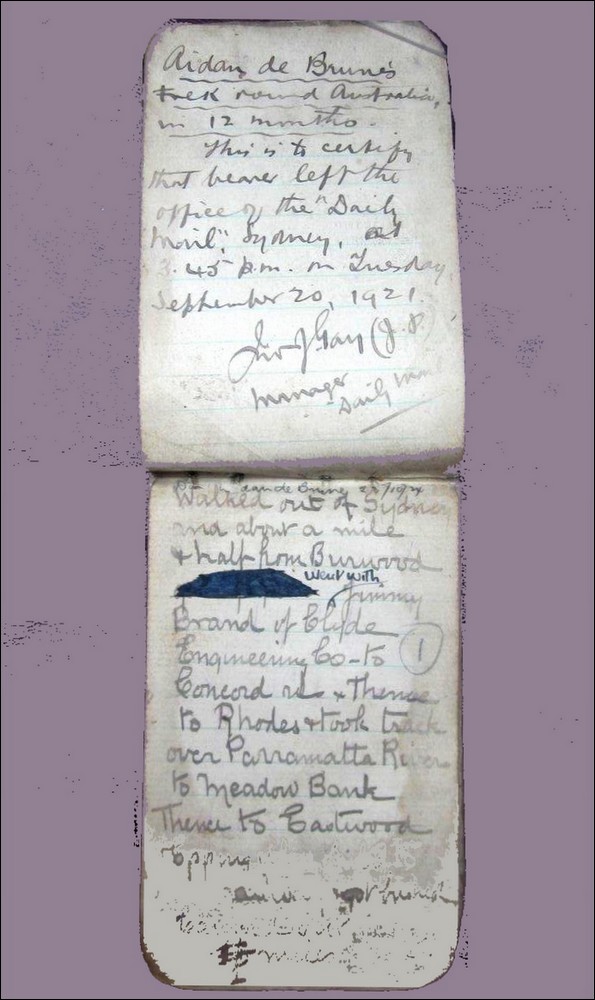 Aidan de Brune's
trek round Australia,
in 12 months.
This is to certify
that bearer left the
office of the "Daily
Mail", Sydney, at
3.45 p.m. on Tuesday,
September 20, 1921.
Gay (J.P.)
Manager
Daily Mail
de Brune
Walked out of Sydney
and about a mile
& half from Burwood
went with
Jimmy
Brand of Clyde
Engineering Co-to
1
Concord & Thence
to Rhodes & took track
over Parramatta River
to Meadow Bank
Thence to Eastwood